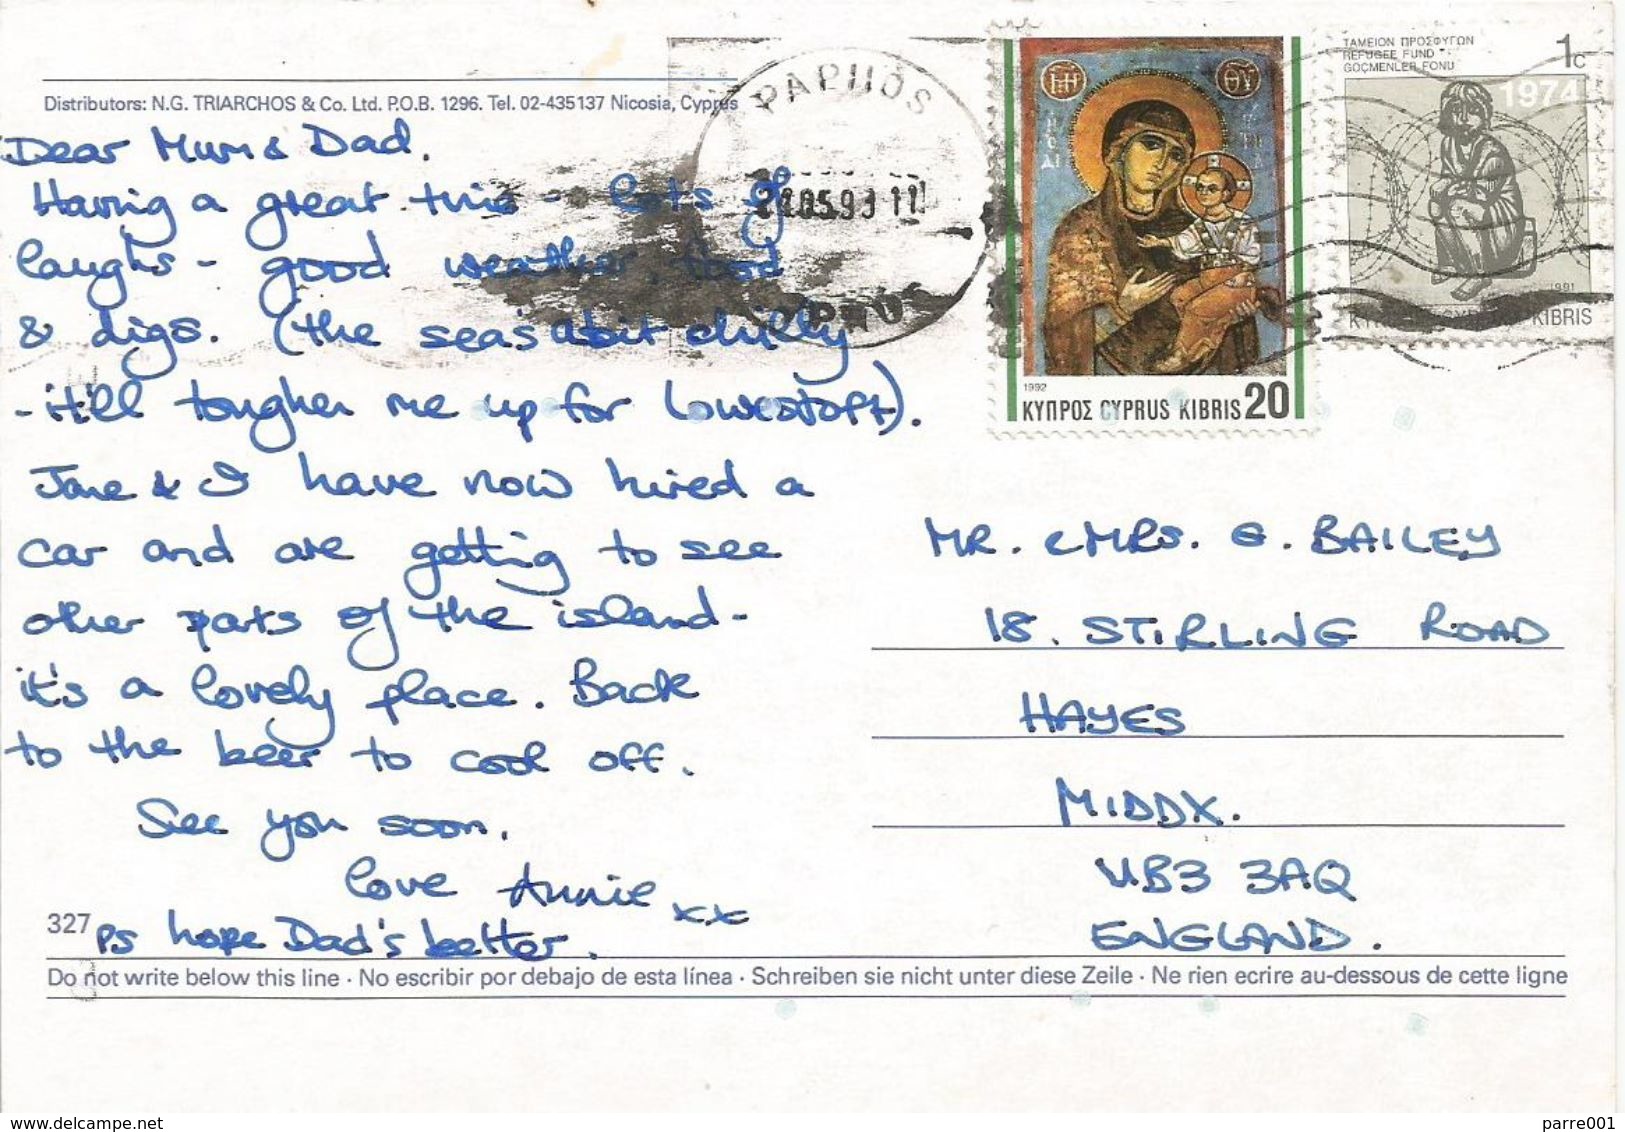 Distributors: N.G. TRIARCHOS & Co. Ltd. P.O.B. 1296. Tel. 02-435137 Nicosia, Cyprus
Dear Mum & Dad.
Having a great time - lots of
laughs - good weather, food
& digs. (the sea's abit chilly
- it'll toughen me up for Lowestoft).
Jane & I have now hired a
car and are getting to see
other parts of the island -
it's a lovely place. Back
to the beer to cool off.
See you soon.
love Annie xx
327
PS hope Dad's better.
PAPHOS
.05.93 11
1992
ΚΥΠΡΟΣ CYPRUS KIBRIS 20
ΤΑΜΕΙΟΝ ΠΡΟΣΦΥΓΩΝ
REFUGEE FUND
GÖÇMENLER FONU
1c
1974
1991
KIBRIS
MR. & MRS. G. BAILEY
18. STIRLING ROAD
HAYES
MIDDX.
UB3 3AQ
ENGLAND.
Do not write below this line · No escribir por debajo de esta línea · Schreiben sie nicht unter diese Zeile · Ne rien ecrire au-dessous de cette ligne
parre001